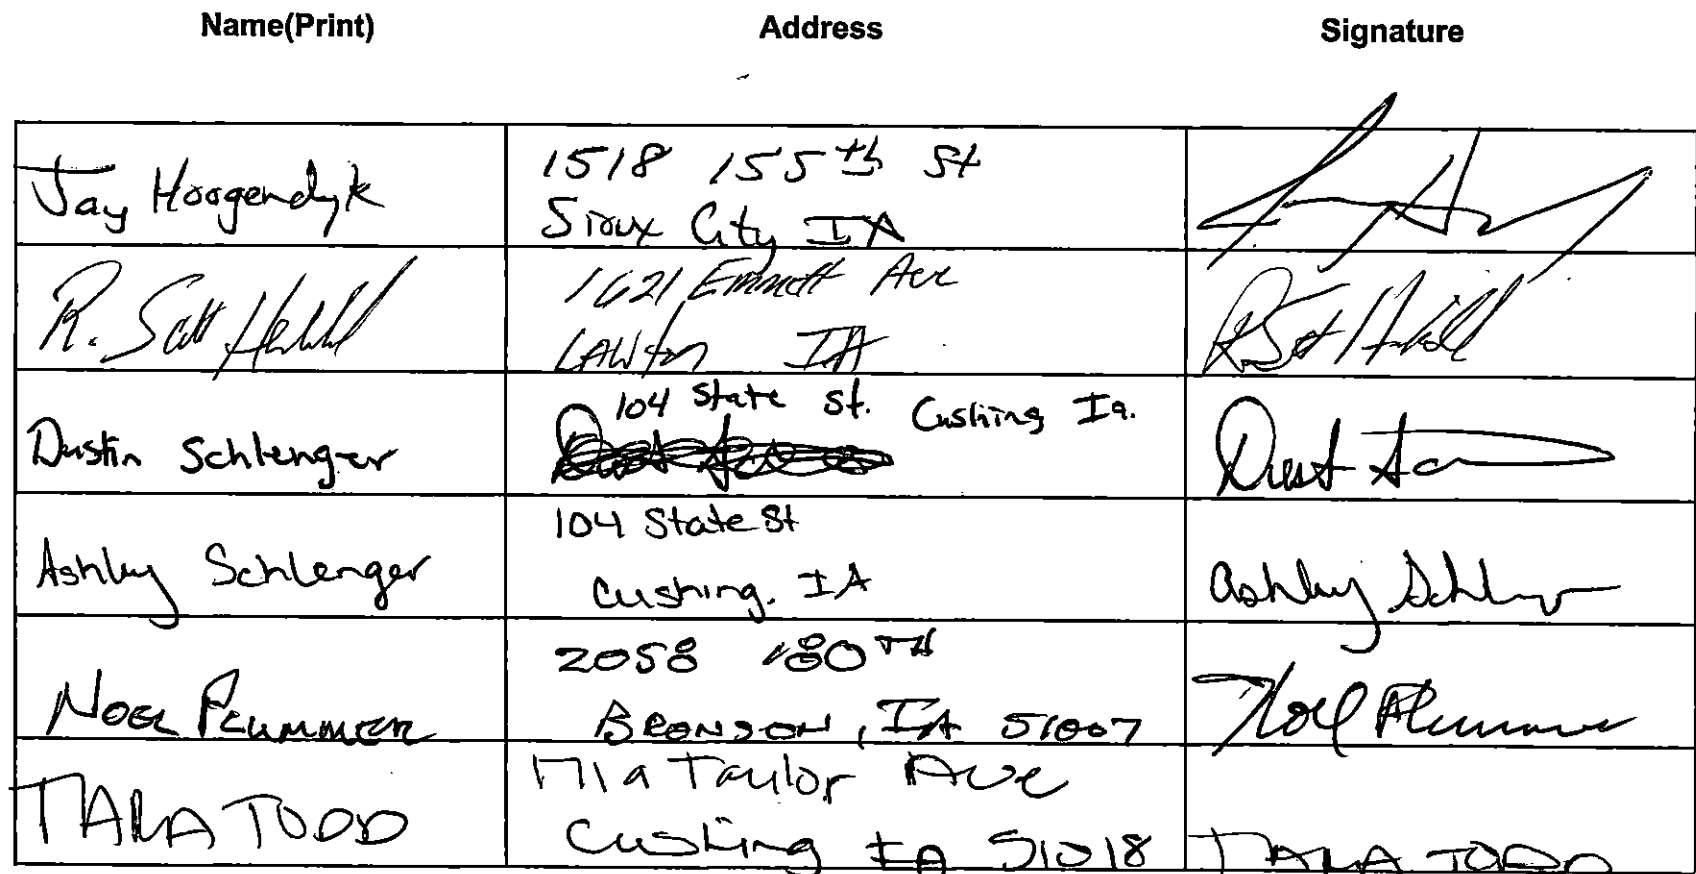 Name(Print) Address Signature
Jay Hoogendyk
1518 155th St
Sioux City IA
R. Scott
1621 Emmett Ave
Lawton IA
Dustin Schlenger
104 State St. Cushing Ia.
Dust
Ashley Schlenger
104 State St
Cushing. IA
Ashley
Noel Plummer
2058 180TH
BRONSON, IA 51007
Noel Plummer
TARA TODD
Taylor Ave
Cushing IA 51018
TARA TODD